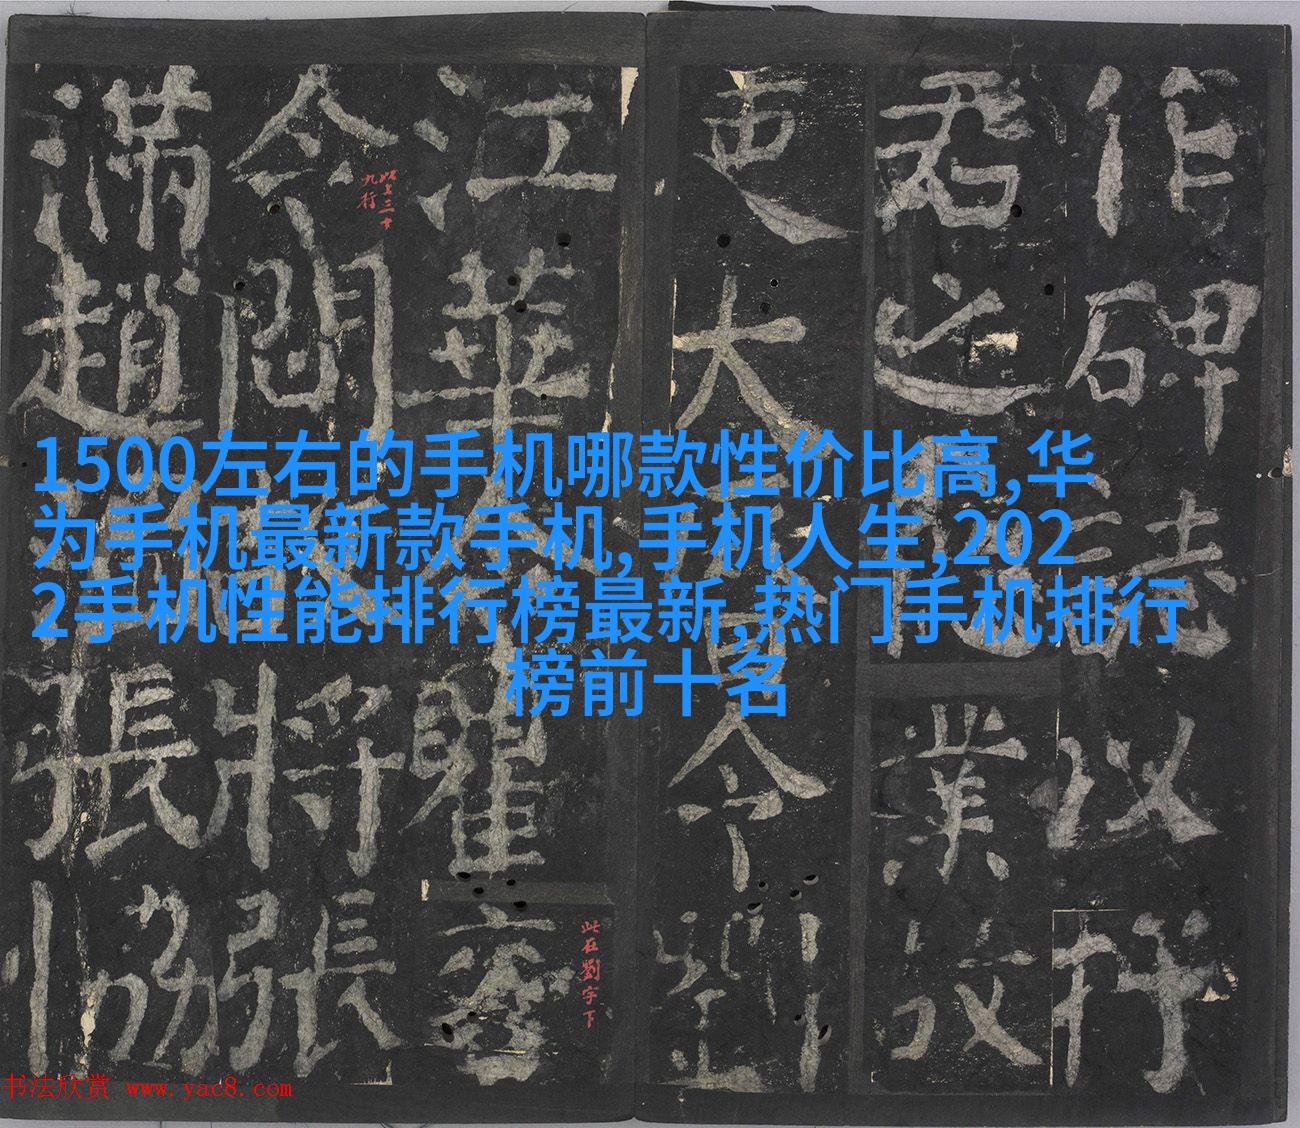 1500左右的手机哪款性价比高,华
为手机最新款手机,手机人生,202
2手机性能排行榜最新,热门手机排行
榜前十名
作碑志以
君之業故
吏大令劉
江華瞿
令閭將張
滿趙張協
九行
此在劉字下
书法欣赏 www.yac8.com